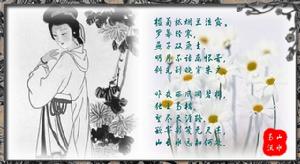 槛菊愁烟兰泣露。
罗幕轻寒,
燕子双飞去。
明月不谙离恨苦,
斜光到晓穿朱户。
昨夜西风凋碧树。
独上高楼,
望尽天涯路。
欲寄彩笺无尺素,
山长水远知何处